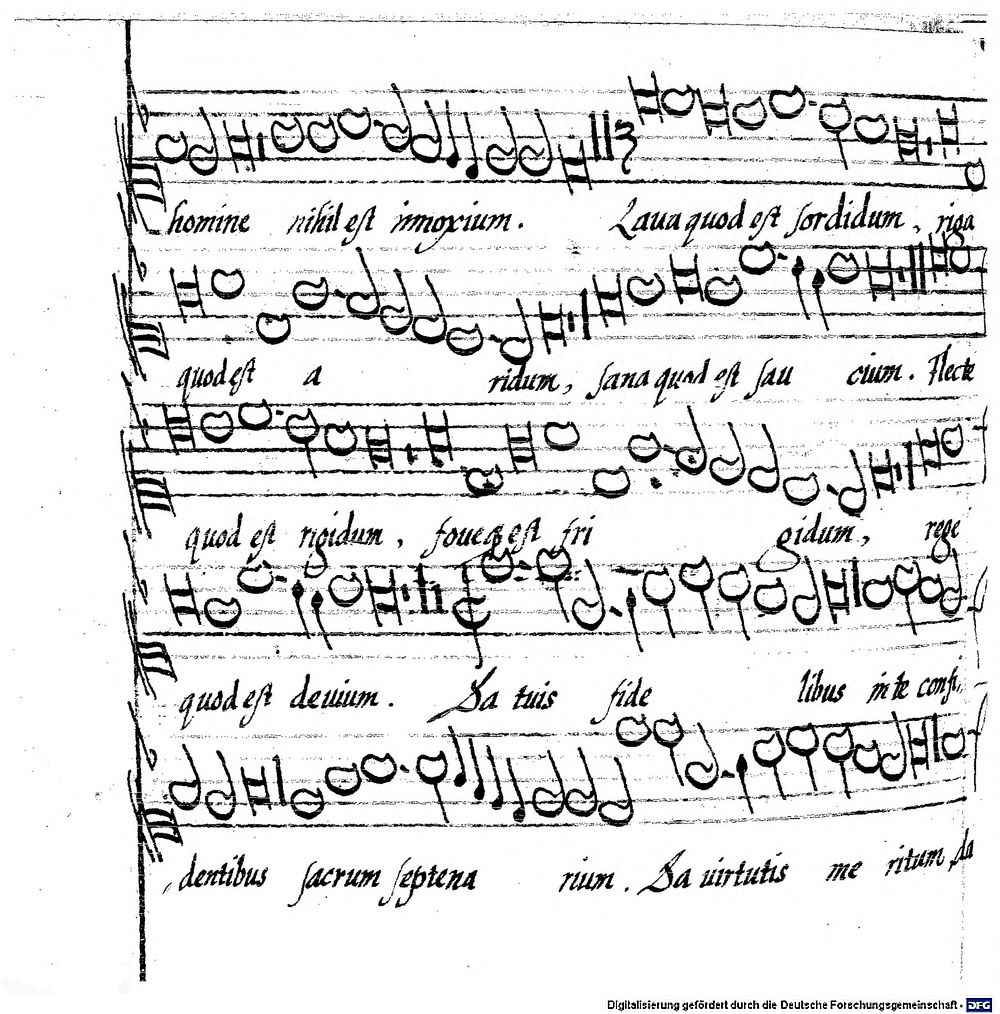 homine nihil est innoxium. Laua quod est sordidum, riga
quod est a ridum, sana quod est sau cium. Flecte
quod est rigidum, foue q est fri gidum, rege
quod est deuium. Da tuis fide libus in te confi,
dentibus sacrum septena rium. Da uirtutis me ritum da
Digitalisierung gefördert durch die Deutsche Forschungsgemeinschaft - DFG